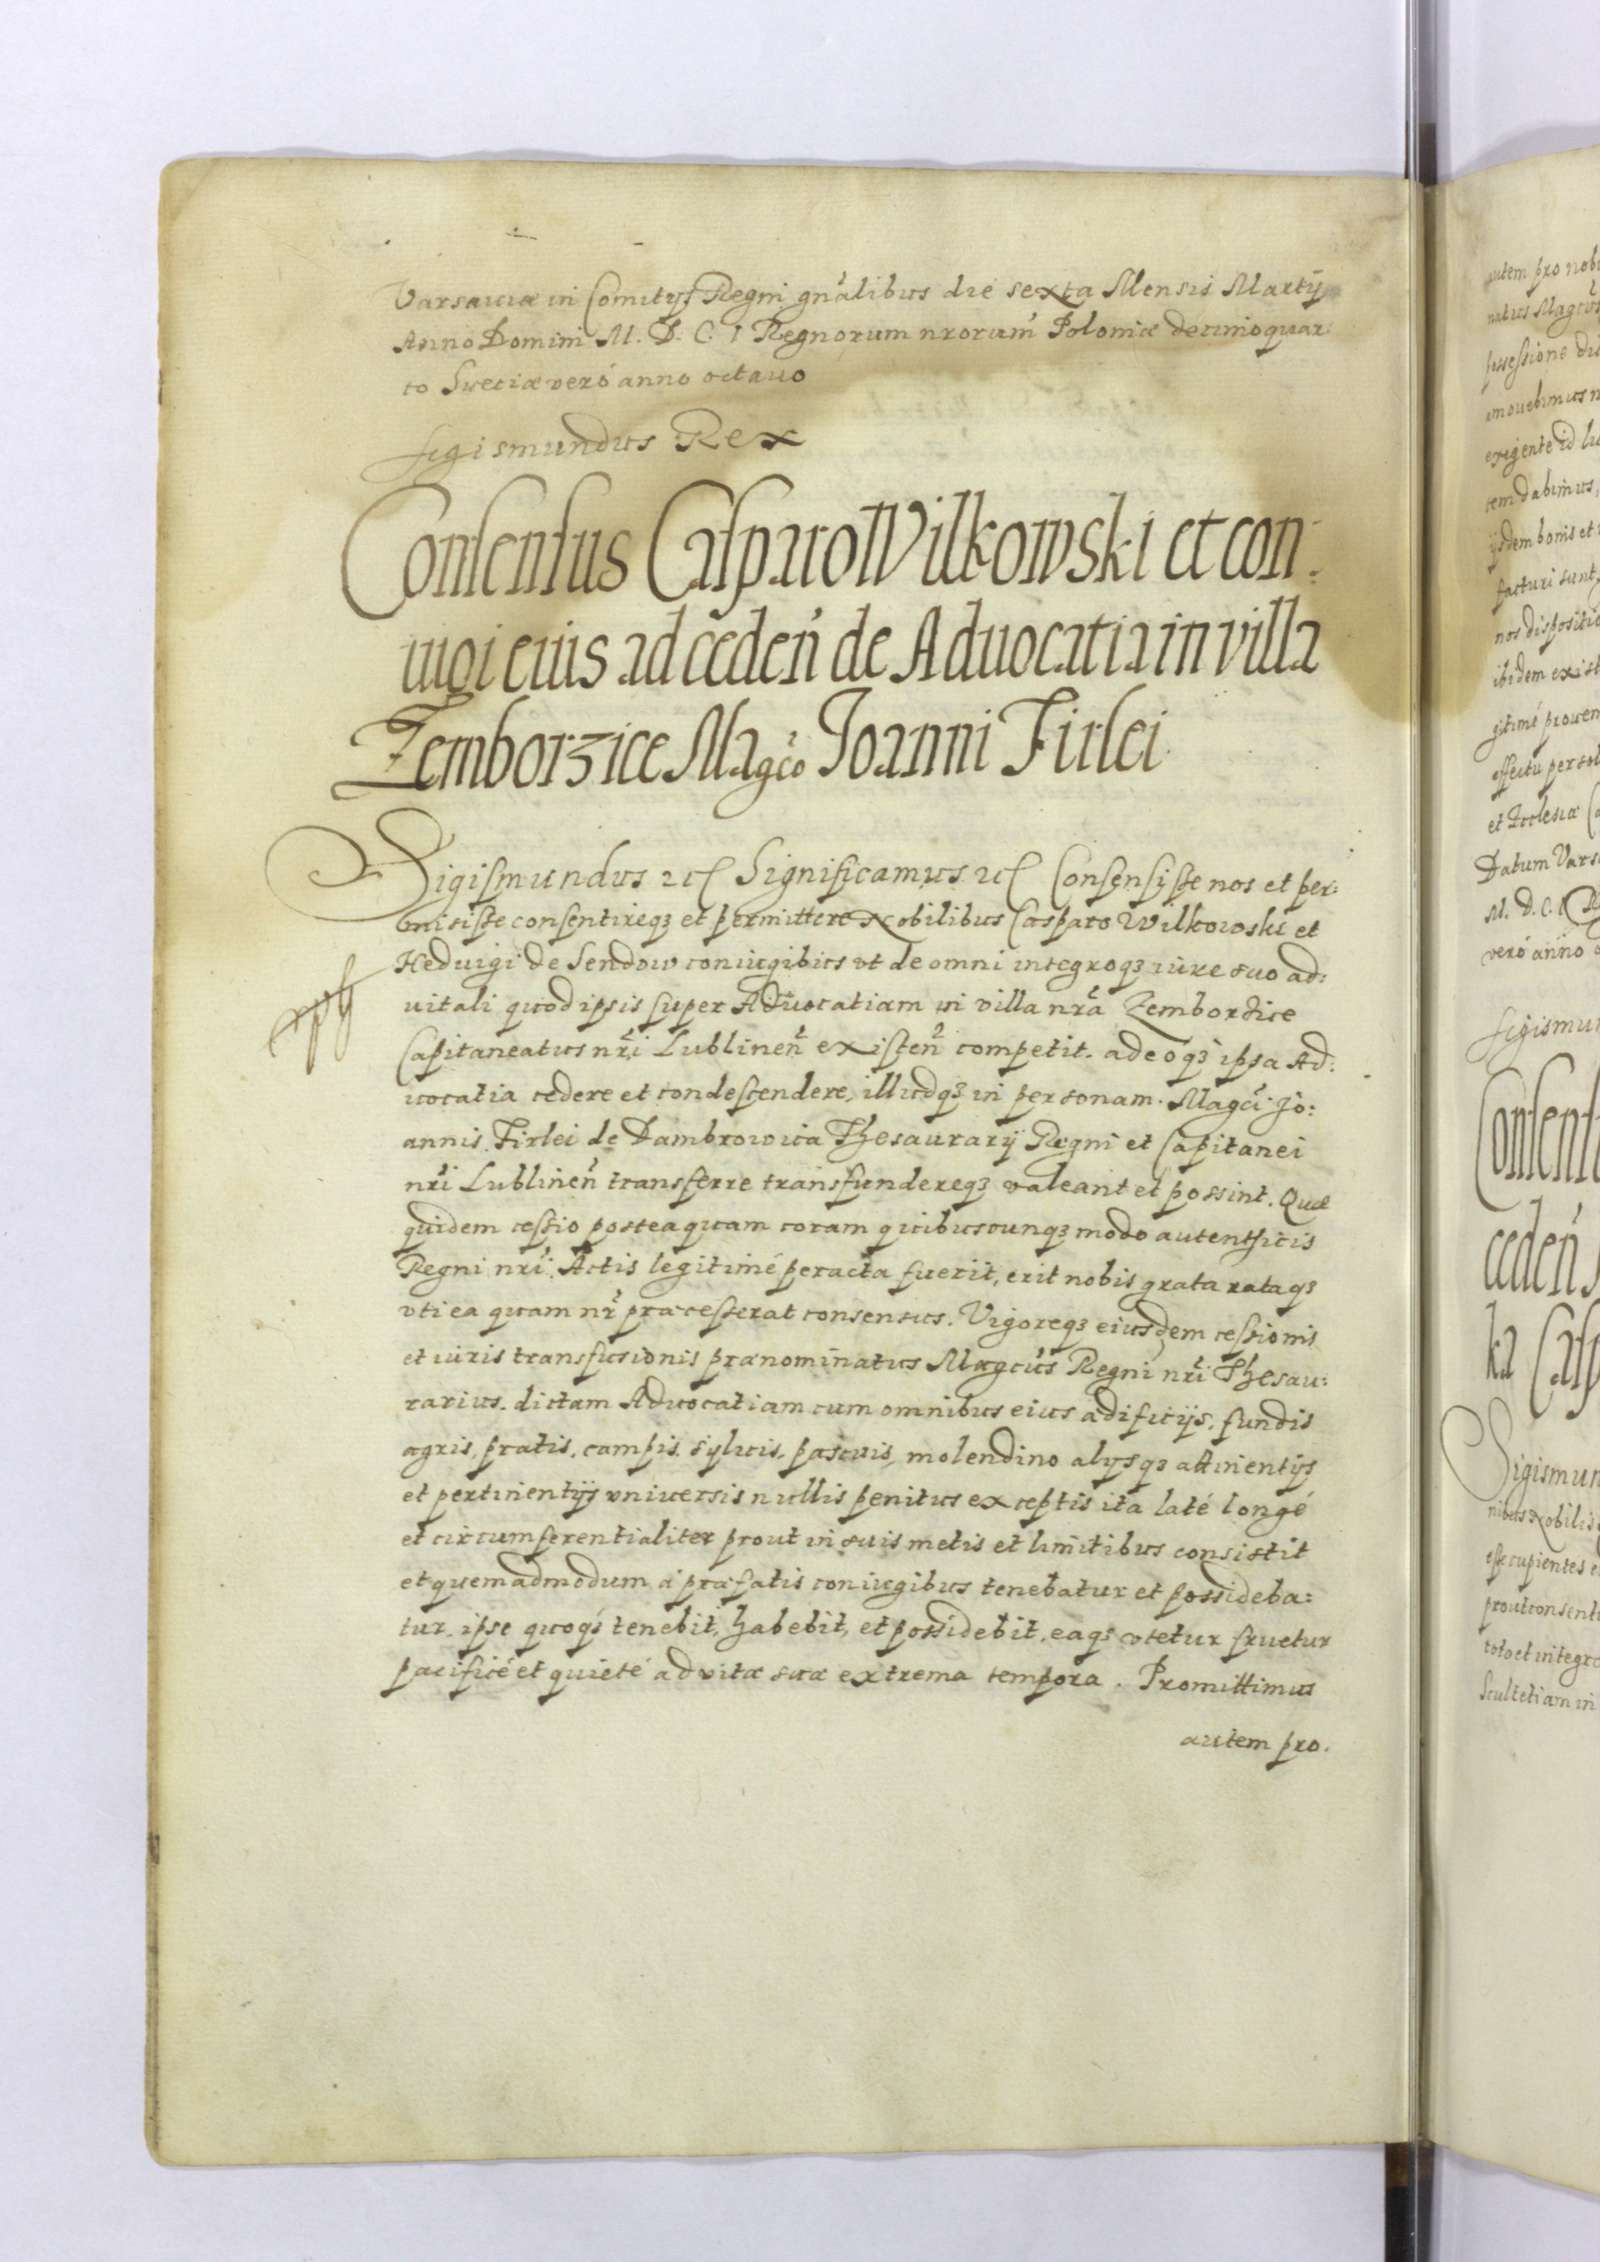 Varsaviæ in Comitijs Regni gn̄alibus die sexta Mensis Martij
Anno Domini M. D. C. I Regnorum nrorum Poloniæ decimoquar:
to Sveciæ veró anno octauo
Sigismundus Rex
Consensus Casparo Wilkowski et con:
iugi eius ad ceden̄ de Aduocatia in villa
Zemborzice Magco Ioanni Firlei
Sigismundus etc Significamus etc Consensisse nos et per:
misisse consentireqȝ et permittere Nobilibus Casparo Wilkowski et
Hedvigi de Sendow coniugibus vt de omni integroqȝ iure suo ad:
vitali quod ipsis super Aduocatiam in villa nrā Zemborzice
Capitaneatus nri Lublinen̄ existen̄ competit. adeoqȝ ipsa Ad:
uocatia cedere et condescendere, illudqȝ in personam Magci Jo:
annis Firlei de Dambrowica Thesaurarij Regni et Capitanei
nri Lublinen̄ transferre transfundereqȝ valeant et possint. Quæ
quidem cessio posteaquam coram quibuscunqȝ modo autenthicis
Regni nri Actis legitimé peracta fuerit, erit nobis grata rataqȝ
vti ea quam nr̄ præcesserat consensus. Vigoreqȝ eiusdem cessionis
et iuris transfusionis prænominatus Magcus Regni nri Thesau:
rarius. dictam Aduocatiam cum omnibus eius ædificijs, fundis
agris, pratis, campis, syluis, pascuis, molendino alijsqȝ attinentijs
et pertinentijs vniuersis nullis penitus exceptis ita laté longé
et circumferentialiter prout in suis metis et limitibus consistit
et quemadmodum á præfatis coniugibus tenebatur et possideba:
tur. ipse quoqȝ tenebit, habebit, et possidebit, eaqȝ vtetur fruetur
pacificé et quieté ad vitæ suæ extrema tempora. Promittimus
autem pro.
autem pro nobi
natus Magcus
possessione
amouebimus
exigente id
tem dabimus,
ijsdem bonis et
facturi sunt,
nos
ibidem
gitimé
effectu
et Ecclesiæ
Datum Vars
M. D. C. I
veró anno
Sigismun
Consens
ceden̄
ka Casp
Sigismun
nibus Nobilis
esse cupientes
prout consent
toto et integro
Scultetiam in